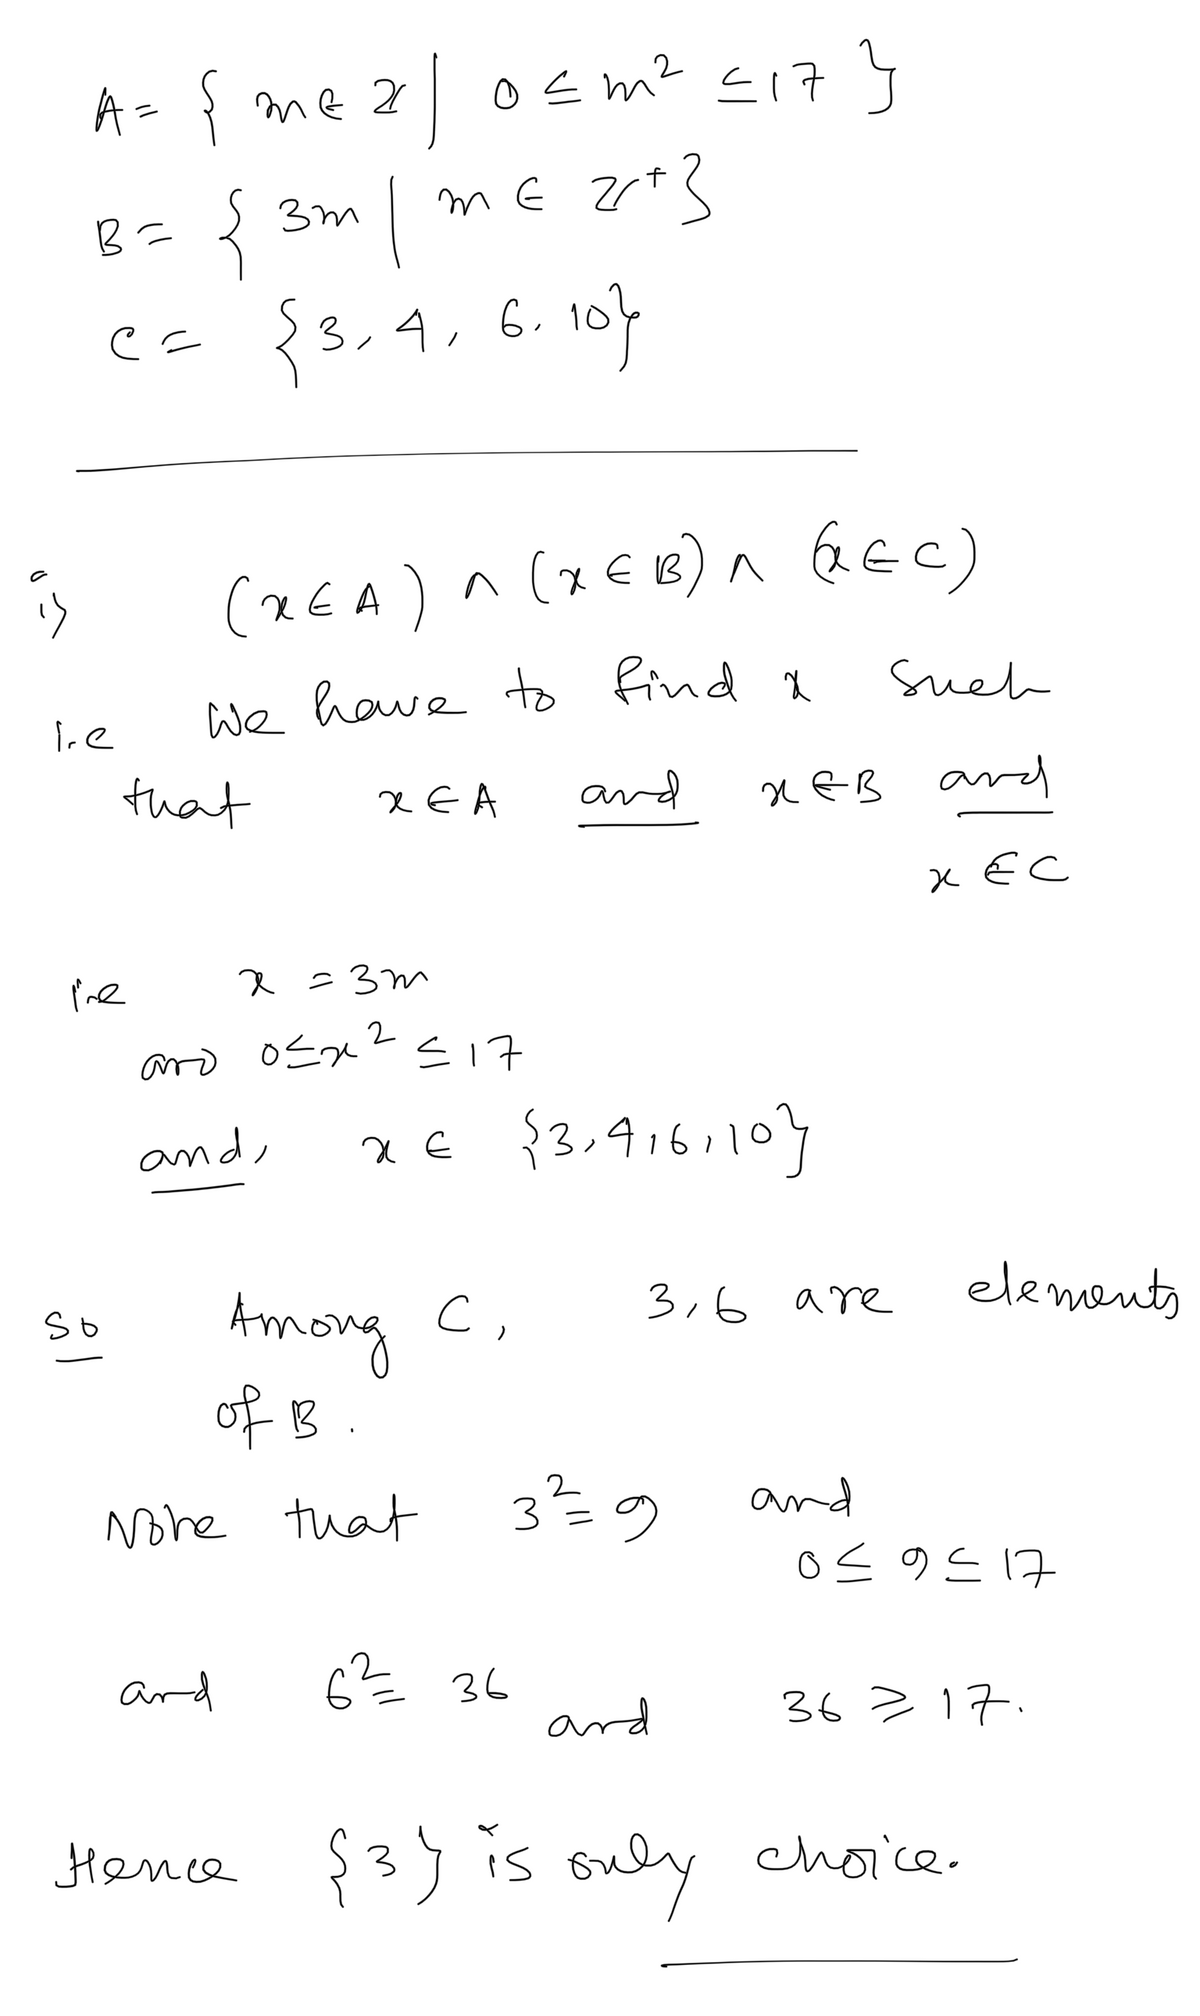 A = { m ∈ Z | 0 ≤ m² ≤ 17 }
B = { 3m | m ∈ Z⁺ }
C = { 3, 4, 6, 10 }
i) (x ∈ A) ∧ (x ∈ B) ∧ (x ∈ C)
i.e We have to find x such
that x ∈ A and x ∈ B and
x ∈ C
i.e x = 3m
and 0 ≤ x² ≤ 17
and, x ∈ {3, 4, 6, 10}
so Among C, 3, 6 are elements
of B.
Note that 3² = 9 and
0 ≤ 9 ≤ 17
and 6² = 36 and 36 ≥ 17.
Hence {3} is only choice.